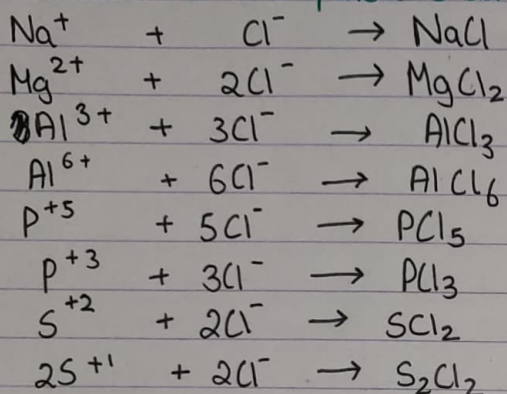 Na⁺ + Cl⁻ → NaCl
Mg²⁺ + 2Cl⁻ → MgCl₂
Al³⁺ + 3Cl⁻ → AlCl₃
Al⁶⁺ + 6Cl⁻ → AlCl₆
P⁺⁵ + 5Cl⁻ → PCl₅
P⁺³ + 3Cl⁻ → PCl₃
S⁺² + 2Cl⁻ → SCl₂
2S⁺¹ + 2Cl⁻ → S₂Cl₂